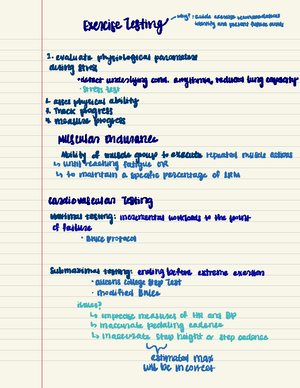 Exercise Testing
why? : Guide exercise recommendations
identify and prevent future events
1. evaluate physiological parameters
during stress
• detect underlying cond. arrythmia, reduced lung capacity
• Stress test
2. asses physical ability
3. Track progress
4. measure progress
Muscular Endurance
Ability of muscle group to execute repeated muscle actions
↳ until reaching fatigue OR
↳ to maintain a specific percentage of 1RM
Cardiovascular Testing
Maximal testing: incremental workloads to the point
of failure
• Bruce protocol
Submaximal testing: ending before extreme exertion
• Queens College Step Test
• Modified Bruce
issues?
↳ imprecise measures of HR and BP
↳ inaccurate pedaling cadence
↳ inaccurate step height or step cadence
estimated max
will be incorrect